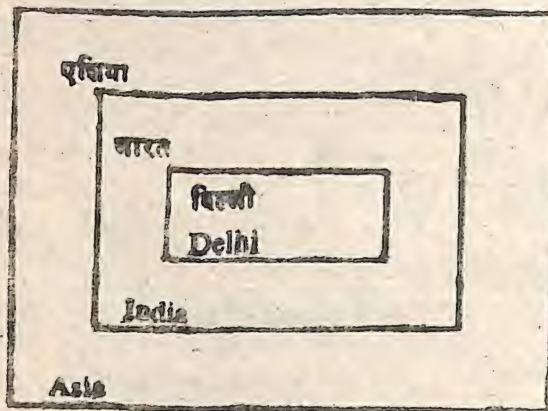 एशिया
भारत
दिल्ली
Delhi
India
Asia